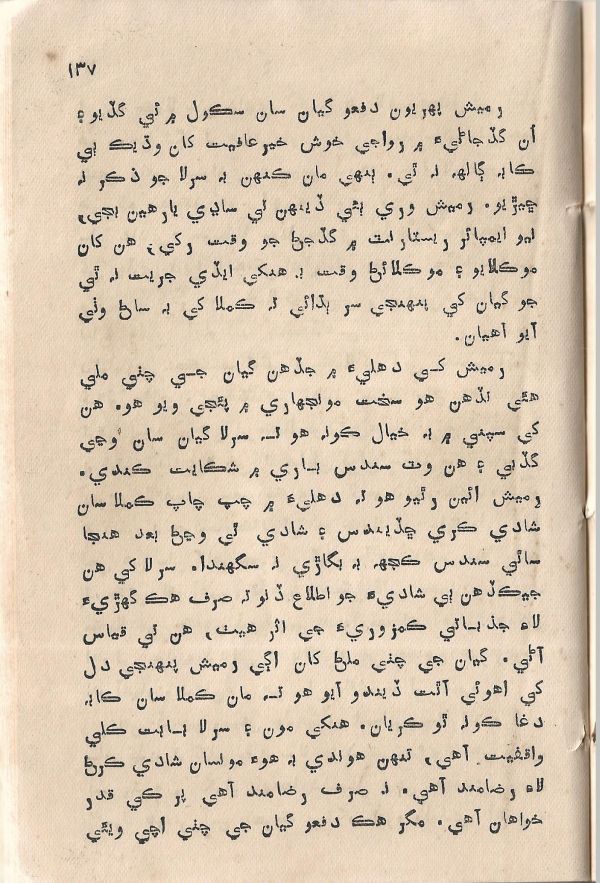 ۱۳۷
رميش پهريون دفعو گيان سان سڪول ۾ ئي گڏيو ۽
اُن گڏجاڻيءَ ۾ رواجي خوش خير عافيت کان وڌيڪ ٻي
ڪابه ڳالهه نه ٿي. ٻنهي مان ڪنهن به سرلا جو ذڪر نه
ڇيڙيو. رميش وري ٻئي ڏينهن تي ساڍي يارهين بجي،
نيو ايمپائر ريسٽارنٽ ۾ گڏجڻ جو وقت رکي، هن کان
موڪلايو ۽ موڪلائڻ وقت به هنکي ايڏي جرئت نه ٿي
جو گيان کي پنهنجي سر ٻڌائي ته ڪملا کي به ساڻ وٺي
آيو آهيان.
رميش کي دهليءَ ۾ جڏهن گيان جي چٺي ملي
هئي تڏهن هو سخت مونجهاري ۾ پئجي ويو هو. هن
کي سپني ۾ به خيال ڪونه هو ته سرلا گيان سان وڃي
گڏبي ۽ هن وٽ سندس باري ۾ شڪايت ڪندي.
رميش ائين رٿيو هو ته دهليءَ ۾ چپ چاپ ڪملا سان
شادي ڪري ڇڏيندس ۽ شادي ٿي وڃڻ بعد هنجا
ساٿي سندس ڪجهه به بگاڙي نه سگهندا. سرلا کي هن
جيڪڏهن ٻي شاديءَ جو اطلاع ڏنو ته صرف هڪ گهڙيءَ
لاءِ جذباتي ڪمزوريءَ جي اثر هيٺ، هن تي قياس
آڻي. گيان جي چٺي ملڻ کان اڳي رميش پنهنجي دل
کي اهوئي آٿت ڏيندو آيو هو ته مان ڪملا سان ڪابه
دغا ڪونه ٿو ڪريان. هنکي مون ۽ سرلا بابت کلي
واقفيت آهي، تنهن هوندي به هوءَ مونسان شادي ڪرڻ
لاءِ رضامند آهي. نه صرف رضامند آهي پر ڪي قدر
خواهان آهي. مگر هڪ دفعو گيان جي چٺي اچي ويئي